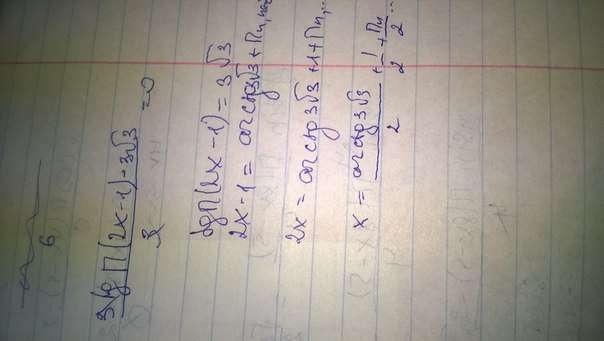 6
3tgП(2x-1)-3√3 / 3 =0
tgП(2x-1)=3√3
2x-1=arctg3√3+Пn, n∈Z
2x=arctg3√3+1+Пn,...
x=arctg3√3/2+1/2+Пn/2...